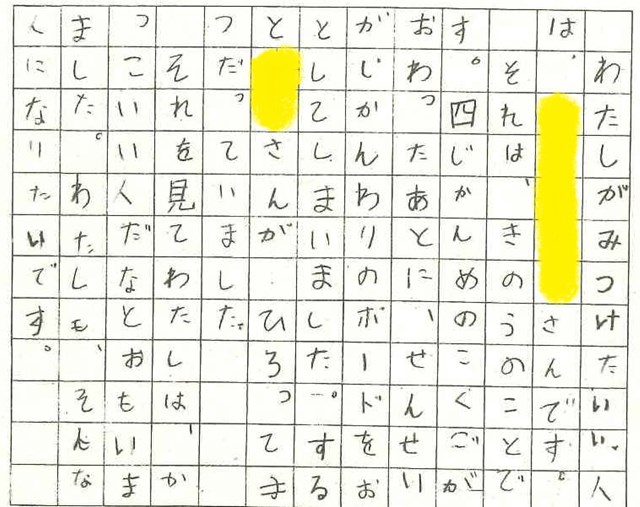 わたしがみつけたいい、人
は、さんです。
それは、きのうのことで
す。四じかんめのこくごが
おわったあとに、せんせい
がじかんわりのボードをお
としてしまいました。する
とさんが ひろってま
つだっていました。
それを見てわたしは、か
っこいい人だなとおもいま
ました。わたしも、そんな
人になりたいです。